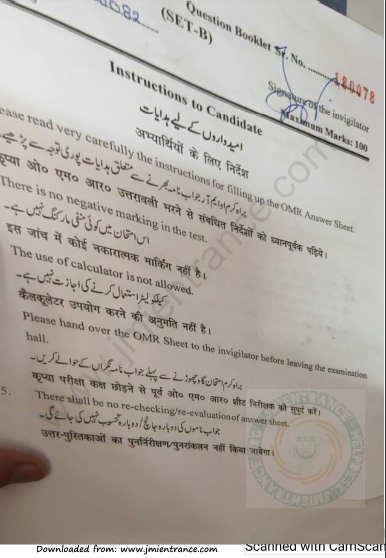 0082
Question Booklet Sr. No. .......... 180078
(SET-B)
Signature of the invigilator
Maximum Marks: 100
Instructions to Candidate
امیدواروں کے لیے ہدایات
अभ्यार्थियों के लिए निर्देश
ease read very carefully the instructions for filling up the OMR Answer Sheet.
براہ کرم او ایم آر جواب نامہ بھرنے سے متعلق ہدایات پوری توجہ سے پڑھیے
कृप्या ओ० एम० आर० उत्तरावली भरने से संबंधित निर्देशों को ध्यानपूर्वक पढ़िये।
There is no negative marking in the test.
اس امتحان میں کوئی منفی مارکنگ نہیں ہے۔
इस जांच में कोई नकारात्मक मार्किंग नहीं है।
The use of calculator is not allowed.
کیلکولیٹر استعمال کرنے کی اجازت نہیں ہے۔
कैलकूलेटर उपयोग करने की अनुमति नहीं है।
Please hand over the OMR Sheet to the invigilator before leaving the examination
hall.
براہ کرم امتحان گاہ چھوڑنے سے پہلے جواب نامہ نگراں کے حوالے کریں۔
कृप्या परीक्षा कक्ष छोड़ने से पूर्व ओ० एम० आर० शीट निरीक्षक को सुपुर्द करें।
5. There shall be no re-checking/re-evaluation of answer sheet.
جواب ناموں کی دوبارہ جانچ/دوبارہ تحسیب نہیں کی جائے گی۔
उत्तर-पुस्तिकाओं का पुनर्निरीक्षण/पुनरांकलन नहीं किया जायेगा।
www.jmientrance.com
Downloaded from: www.jmientrance.com
Scanned with CamScan